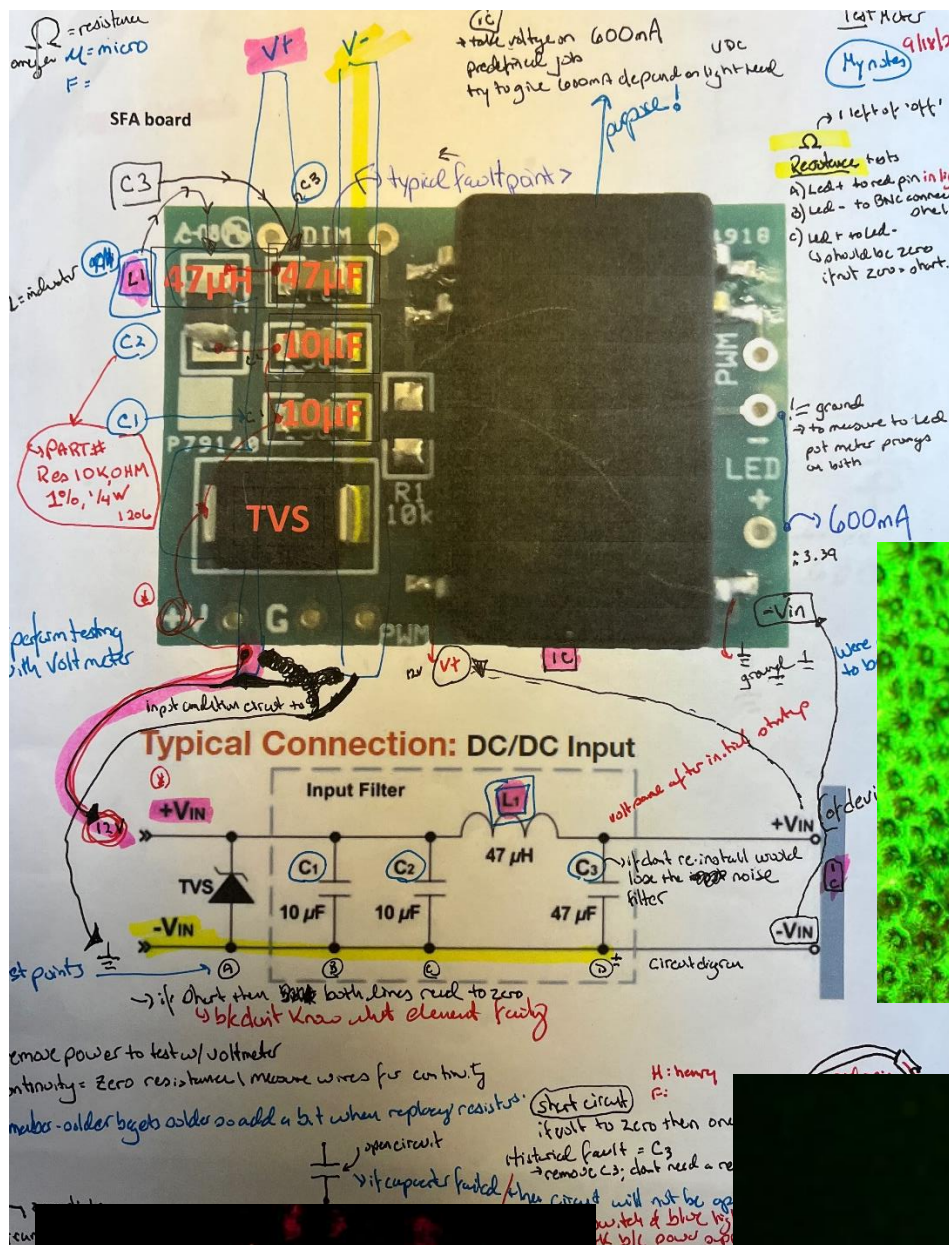 Ω = resistance
omega
μ = micro
F =
V+
V-
IC
→ take voltage on 600mA
predefined job
VDC
try to give 600mA depend on light head
purpose!
Test Meter
9/18/2
My notes
→ 1 left of 'off'
Ω
Resistance tests
A) Led+ to red pin in
B) Led- to BNC connec
c) Led+ to Led-
↳ should be zero
if not zero = short.
SFA board
C3
C3
typical fault point >
DIM
4918
L1
47μH
47μF
L = inductor
C2
10μF
PWM
C1
10μF
P79140
→ PART#
Res 10K OHM
1%, 1/4W
1206
R1
10k
TVS
-
LED
+
= ground
→ to measure to Led
put meter prongs
on both
→ 600mA
3.39
-Vin
+V
G
PWM
perform testing
with voltmeter
12V
V+
IC
ground
were
to b
input condition circuit to
Typical Connection: DC/DC Input
volt same after initial startup
Input Filter
+VIN
12V
L1
47 μH
+VIN
of devi
IC
TVS
C1
C2
C3
10 μF
10 μF
47 μF
→ if dont re-install would
lose the noise
filter
-VIN
-VIN
st points
A
B
C
D
circuit digram
→ if short then both lines read to zero
↳ b/c don't know what element faulty
emove power to test w/ voltmeter
ontinuity = zero resistance / measure wires for continuity
member - solder begets solder so add a bit when replacing resistors.
H: henry
F:
short circuit
if volt to zero then one
Historical fault = C3
→ remove C3; dont need a re
open circuit
→ if capacitor failed / then circuit will not be op
b/c power supp